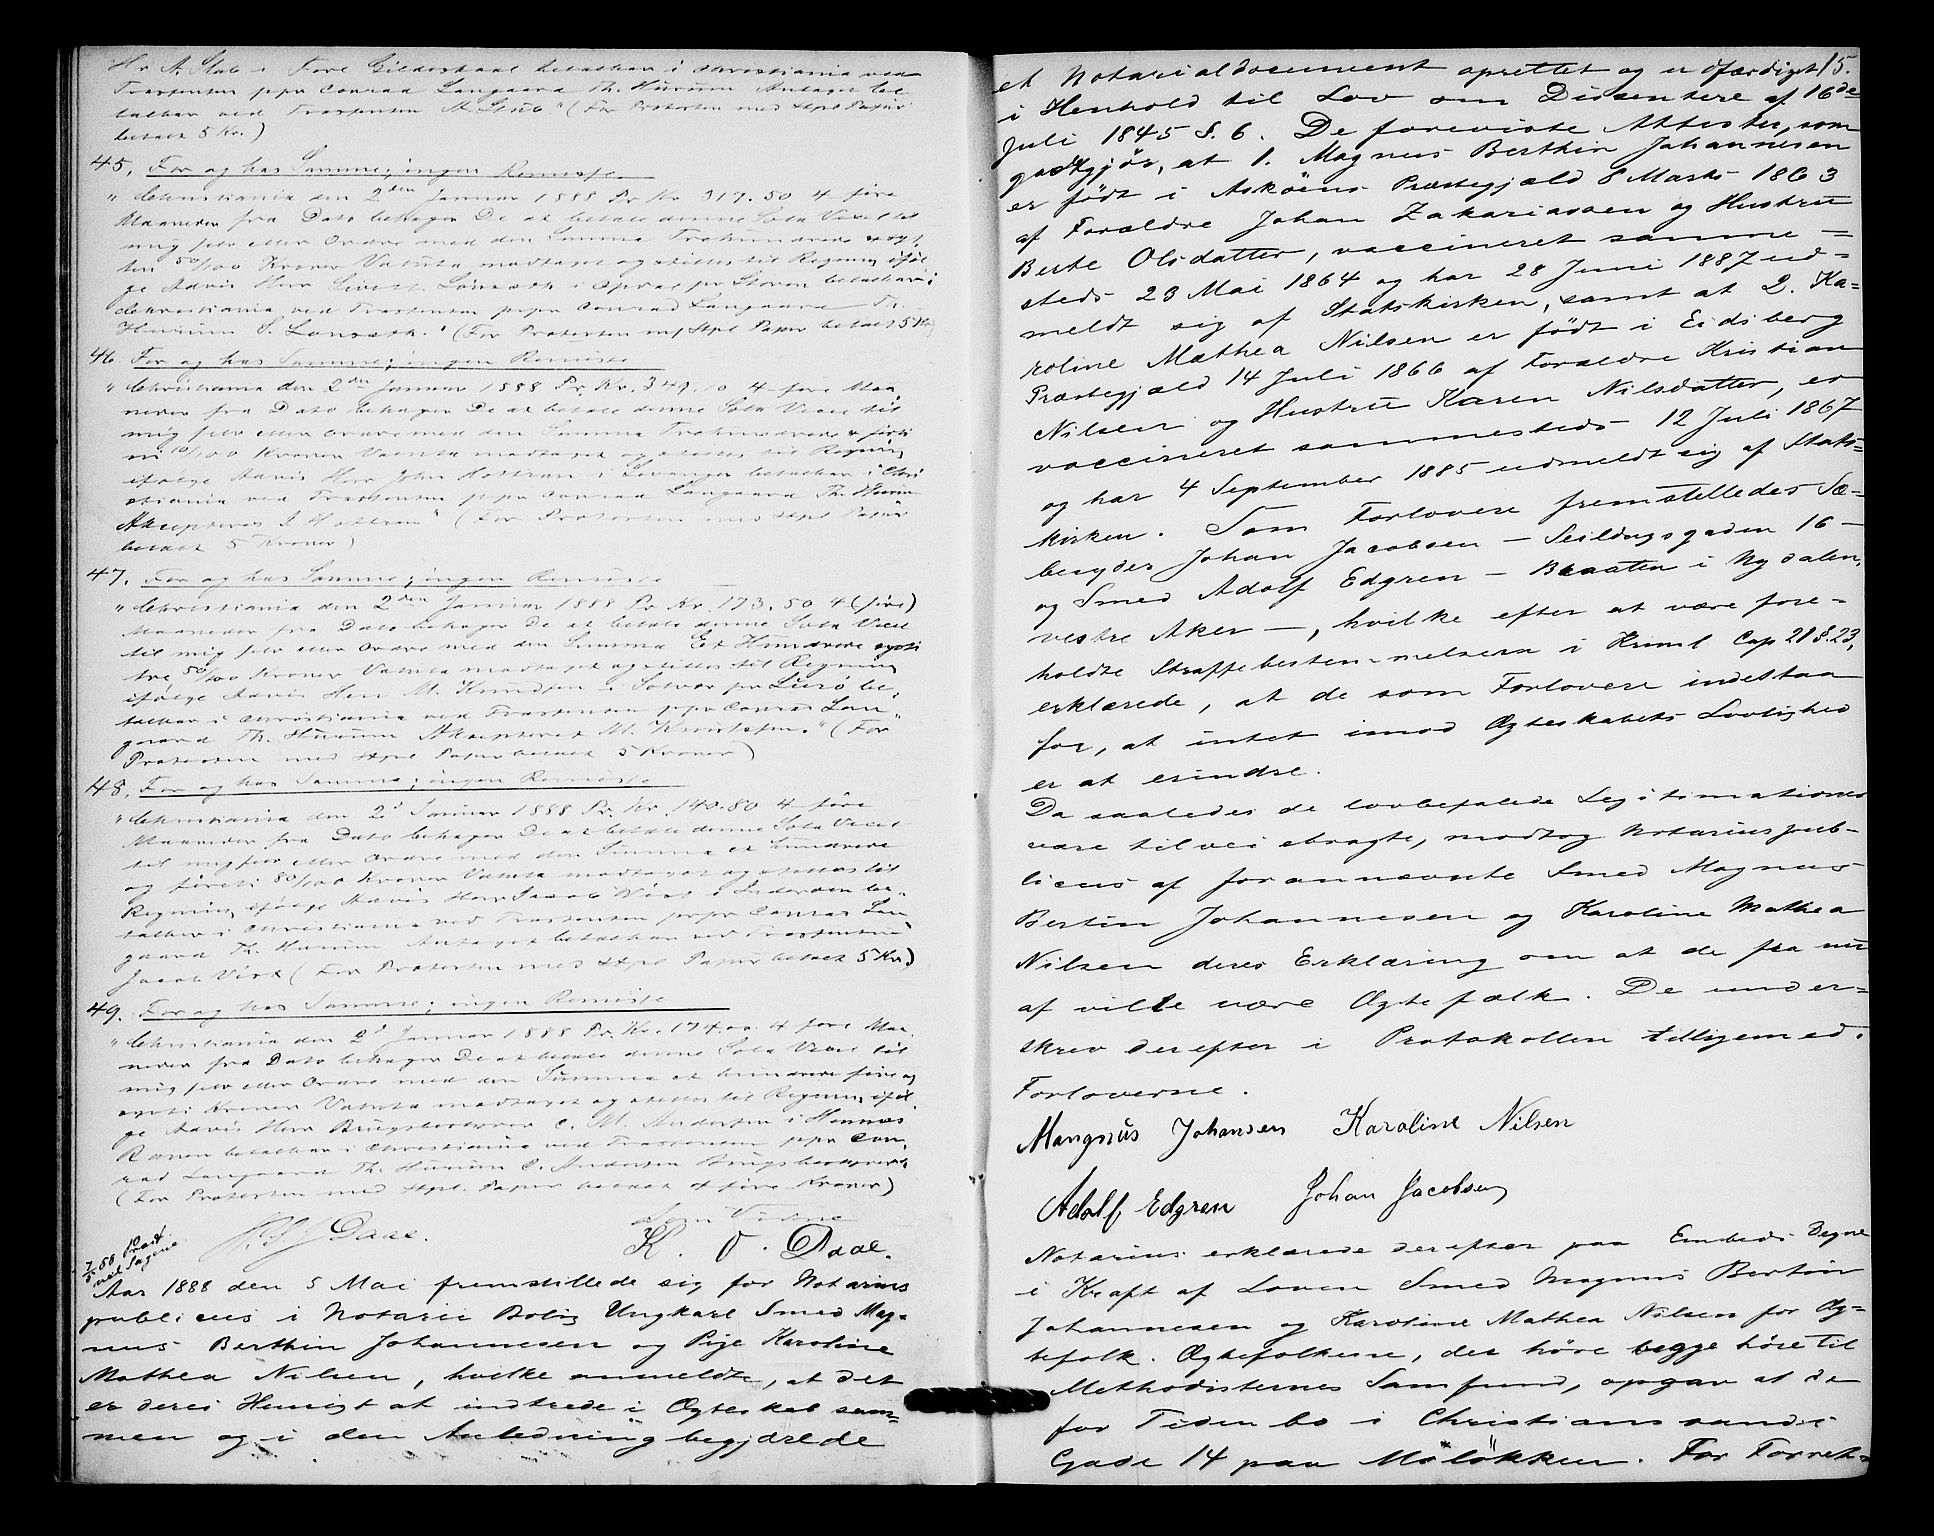 Hr A. Stub i Fore Gildeskaal betalbar i Christiania ved
Trassenten pr pr Conrad Langaard Th. Hurum Antaget be
talbar ved Trassenten A. Stub." (For Protesten med Stpl Papir
betalt 5 Kr.)
45. For og hos Samme; ingen Remisse
" Christiania den 2den Januar 1888 Pr Kr 317.50 4 fire
Maaneder fra Dato behager De at betale denne Sola Vexel til
mig selv eller Ordre med den Summa Trehundrede & syt
ten 50/100 Kroner Valuta modtaget og stilles til Regning iføl
ge Advis Herr
Christiania ved Trassenten pr pr Conrad Langaard Th.
Hurum (For Protesten m/ Stpl Papir betalt 5 Kr)
46. For og hos Samme; ingen Remisse
" Christiania den 2den Januar 1888 Pr. Kr. 349. 4 fire Maa
neder fra Dato behager De at betale denne Sola Vexel til
mig selv eller Ordre med den Summa Trehundrede & førti
ni 10/100 Kroner Valuta modtaget og stilles til Regning
ifølge Advis Herr John i Levanger betalbar i Chri
stiania ved Trassenten pr pr Conrad Langaard Th. Hurum
Akcepteres J. (For Protesten med Stpl Papir
betalt 5 Kroner)
47. For og hos Samme; ingen Remisse
" Christiania den 2den Januar 1888 Pr Kr. 173.50 4 (fire)
Maaneder fra Dato behager De at betale denne Sola Vexel
til mig selv eller Ordre med den Summa Et Hundrede sytti
tre 50/100 Kroner Valuta modtaget og stilles til Regning
ifølge Advis Herr M. Knudsen i Solvær pr Lurö be,
talbar i Christiania ved Trassenten pr pr Conrad Lan,
gaard Th. Hurum Akcepteret M. Knudsen." (For
Protesten med Stpl Papir betalt 5 Kroner)
48. For og hos Samme; ingen Remisse
" Christiania den 2d Januar 1888 Pr. Kr. 140.80 4 fire
Maaneder fra Dato behager De at betale denne Sola Vexel
til mig selv eller Ordre med den Summa et hundrede
og førti 80/100 Kroner Valuta modtaget og stilles til
Regning ifølge Advis Herr Jacob Virt i Inderöen be,
talbar i Christiania ved Trassenten pr pr Conrad Lan
gaard Th. Hurum Antaget betalbar ved Trassenten
Jacob Virt (For Protesten med Stpl Papir betalt 5 Kr.)
49. For og hos Samme; ingen Remisse
" Christiania den 2d Januar 1888 Pr. Kr. 174.00. 4 fire Maa
neder fra Dato behager De at betale denne Sola Vexel til
mig selv eller Ordre med den Summa et hundrede fire og
sytti Kroner Valuta modtaget og stilles til Regning iføl
ge Advis Herr Brugsbestyrer C. M. Andersen i Hemnæs
Ranen betalbar i Christiania ved Trassenten pr pr Con,
rad Langaard Th. Hurum C. Andersen Brugsbestyrer"
(For Protesten med Stpl. Papir betalt 4 fire Kroner)
Daae. Som Vidne
K. O. Daae.
7/5 88 Præst
ved Sagene
Aar 1888 den 5 Mai fremstillede sig for Notarius
publicus i Notarii Bolig Ungkarl Smed Mag-
nus Berthin Johannesen og Pige Karoline
Mathea Nilsen, hvilke anmeldte, at det
er deres Hensigt at indtræde i Ægteskab sam-
men og i den Anledning begjærede
15.
et Notarialdocument oprettet og udfærdiget
i Henhold til Lov om Dissentere af 16de
Juli 1845 §. 6. De foreviste Attester, som
godtgjør, at 1. Magnus Berthin Johannesen
er født i Askøens Præstegjæld 8 Marts 1863
af Forældre Johan Zakariassen og Hustru
Berte Olsdatter, vaccineret samme =
steds 23 Mai 1864 og har 28 Juni 1887 ud-
meldt sig af Statskirken, samt at 2. Ka-
roline Mathea Nilsen er født i Eidsberg
Præstegjæld 14 Juli 1866 af Forældre Kristian
Nilsen og Hustru Karen Nilsdatter, er
vaccineret sammesteds 12 Juli 1867
og har 4 September 1885 udmeldt sig af Stats-
kirken. Som Forlovere fremstilledes Sæ-
besyder Johan Jacobsen – Seildugsgaden 16 –
og Smed Adolf Edgren – Braaten i Nydalen,
vestre Aker –, hvilke efter at være fore-
holdte Straffebestemmelsern i Kriml. Cap 21 §. 23,
erklærede, at de som Forlovere indestaa
for, at intet imod Ægteskabets Lovlighed
er at erindre.
Da saaledes de lovbefalede Legitimationer
vare tilveiebragte, modtog Notarius pub-
licus af forannævnte Smed Magnus
Bertin Johannesen og Karoline Mathea
Nilsen deres Erklæring om at de fra nu
af ville være Ægtefælk. De under-
skrev derefter i Protokollen tilligemed
Forloverne.
Mangnus Johansen Karoline Nilsen
Adolf Edgren Johan Jacobsen
Notarius erklærede derefter paa Embeds Vegne
i Kraft af Loven Smed Magnus Bertin
Johannesen og Karoline Mathea Nilsen for Æg-
tefolk. Ægtefolkene, der höre begge höre til
Methodisternes Samfund, opgav at de
for Tiden bo i Christianssands
Gade 14 paa Möllökken. For Forret-